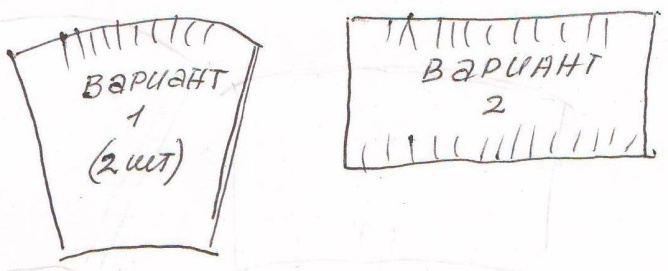 Вариант
1
(2 шт)
Вариант
2